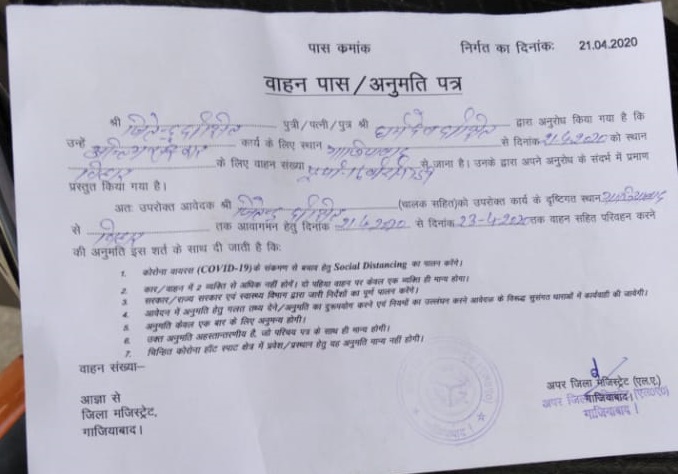 पास कमांक निर्गत का दिनांकः 21.04.2020
वाहन पास/अनुमति पत्र
श्री जितेन्द्र दीक्षित पुत्री/पत्नी/पुत्र श्री दीक्षित द्वारा अनुरोध किया गया है कि
उन्हें कार्य के लिए स्थान गाजियाबाद से दिनांक 21.4.2020 को स्थान
बिहार के लिए वाहन संख्या से जाना है। उनके द्वारा अपने अनुरोध के संदर्भ में प्रमाण
प्रस्तुत किया गया है।
अतः उपरोक्त आवेदक श्री जितेन्द्र दीक्षित (चालक सहित)को उपरोक्त कार्य के दृष्टिगत स्थान गाजियाबाद
से बिहार तक आवागमन हेतु दिनांक 21.4.2020 से दिनांक 23-4-2020 तक वाहन सहित परिवहन करने
की अनुमति इस शर्त के साथ दी जाती है कि:
1. कोरोना वायरस (COVID-19) के संकमण से बचाव हेतु Social Distancing का पालन करेंगे।
2. कार/वाहन में 2 व्यक्ति से अधिक नहीं होंगें। दो पहिया वाहन पर केवल एक व्यक्ति ही मान्य होगा।
3. सरकार/राज्य सरकार एवं स्वास्थ्य विभाग द्वारा जारी निर्देशों का पूर्ण पालन करेंगे।
4. आवेदन में अनुमति हेतु गलत तथ्य देने/अनुमति का दुरूपयोग करने एवं नियमों का उल्लंघन करने आवेदक के विरूद्ध सुसंगत धाराओं में कार्यवाही की जायेगी।
5. अनुमति केवल एक बार के लिए अनुमन्य होगी।
6. उक्त अनुमति अहस्तान्तरणीय है, जो परिचय पत्र के साथ ही मान्य होगी।
7. चिन्हित कोरोना हॉट स्पाट क्षेत्र में प्रवेश/प्रस्थान हेतु यह अनुमति मान्य नहीं होगी।
वाहन संख्या–
आज्ञा से
जिला मजिस्ट्रेट,
गाजियाबाद।
अपर जिला मजिस्ट्रेट (एल.ए.)
गाजियाबाद।
गाजियाबाद।